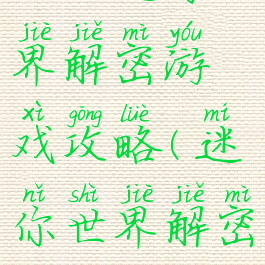 jiè jiě mì yóu
界解密游
xì gōng lüè mí
戏攻略(迷
nǐ shì jiè jiě mì
你世界解密